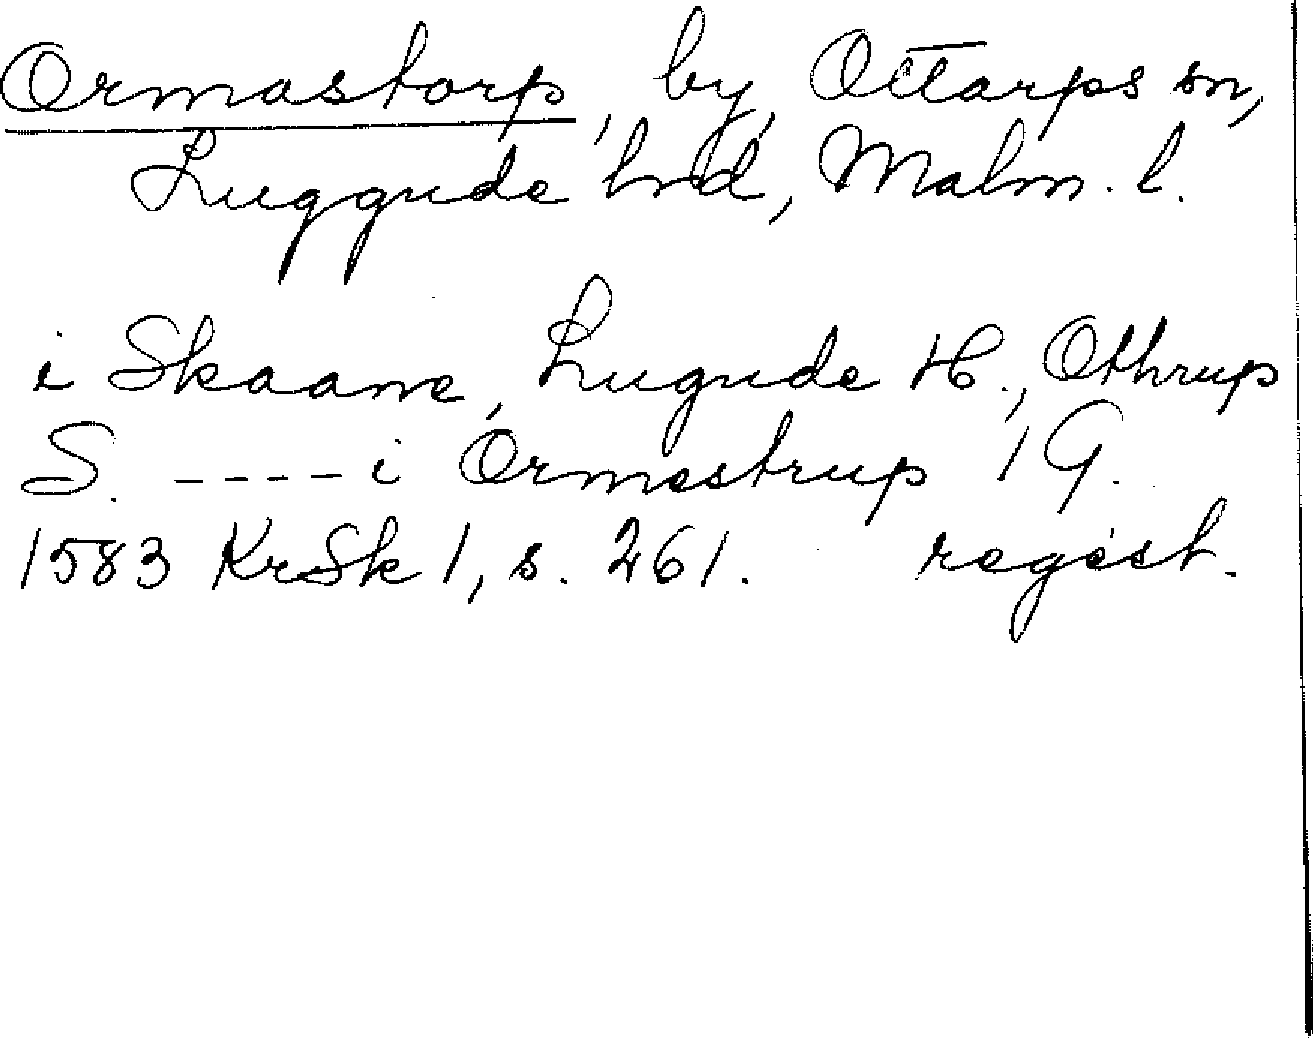 Ormastorp, by, Ottarps sn,
Luggude hrd, Malm. l.
i Skaane, Lugude H., Othrup
S. ---- i Ormestrup 1 G.
1583 KrSk 1, s. 261. regest.